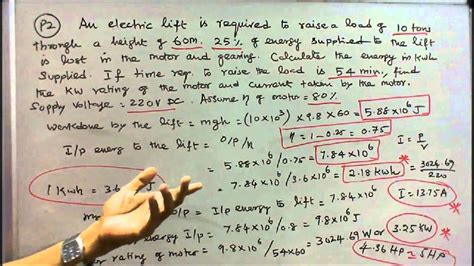 P2 An electric lift is required to raise a load of 10 tons
through a height of 60m. 25% of energy supplied to the lift
is lost in the motor and gearing. Calculate the energy in kwh
Supplied. If time req. to raise the load is 54 min., find
the KW rating of the motor and current taken by the motor.
Supply voltage = 220V DC. Assume η of motor = 80%
Workdone by the lift = mgh = (10×10³) × 9.8 × 60 = 5.88×10⁶ J
I/p energy to the lift = O/P/η η = 1-0.25 = 0.75 I = P/V
= 5.88×10⁶/0.75 = 7.84×10⁶ J = 3024.69/220
1 Kwh = 3.6 J = 7.84×10⁶/3.6×10⁶ = 2.18 kwh * I = 13.75A *
= I/p energy to lift = 7.84×10⁶ J
I/p energy = 7.84×10⁶/0.8 = 9.8×10⁶ J
rating of motor = 9.8×10⁶/54×60 = 3024.69 W or 3.25KW *
4.36 HP ≈ 5HP